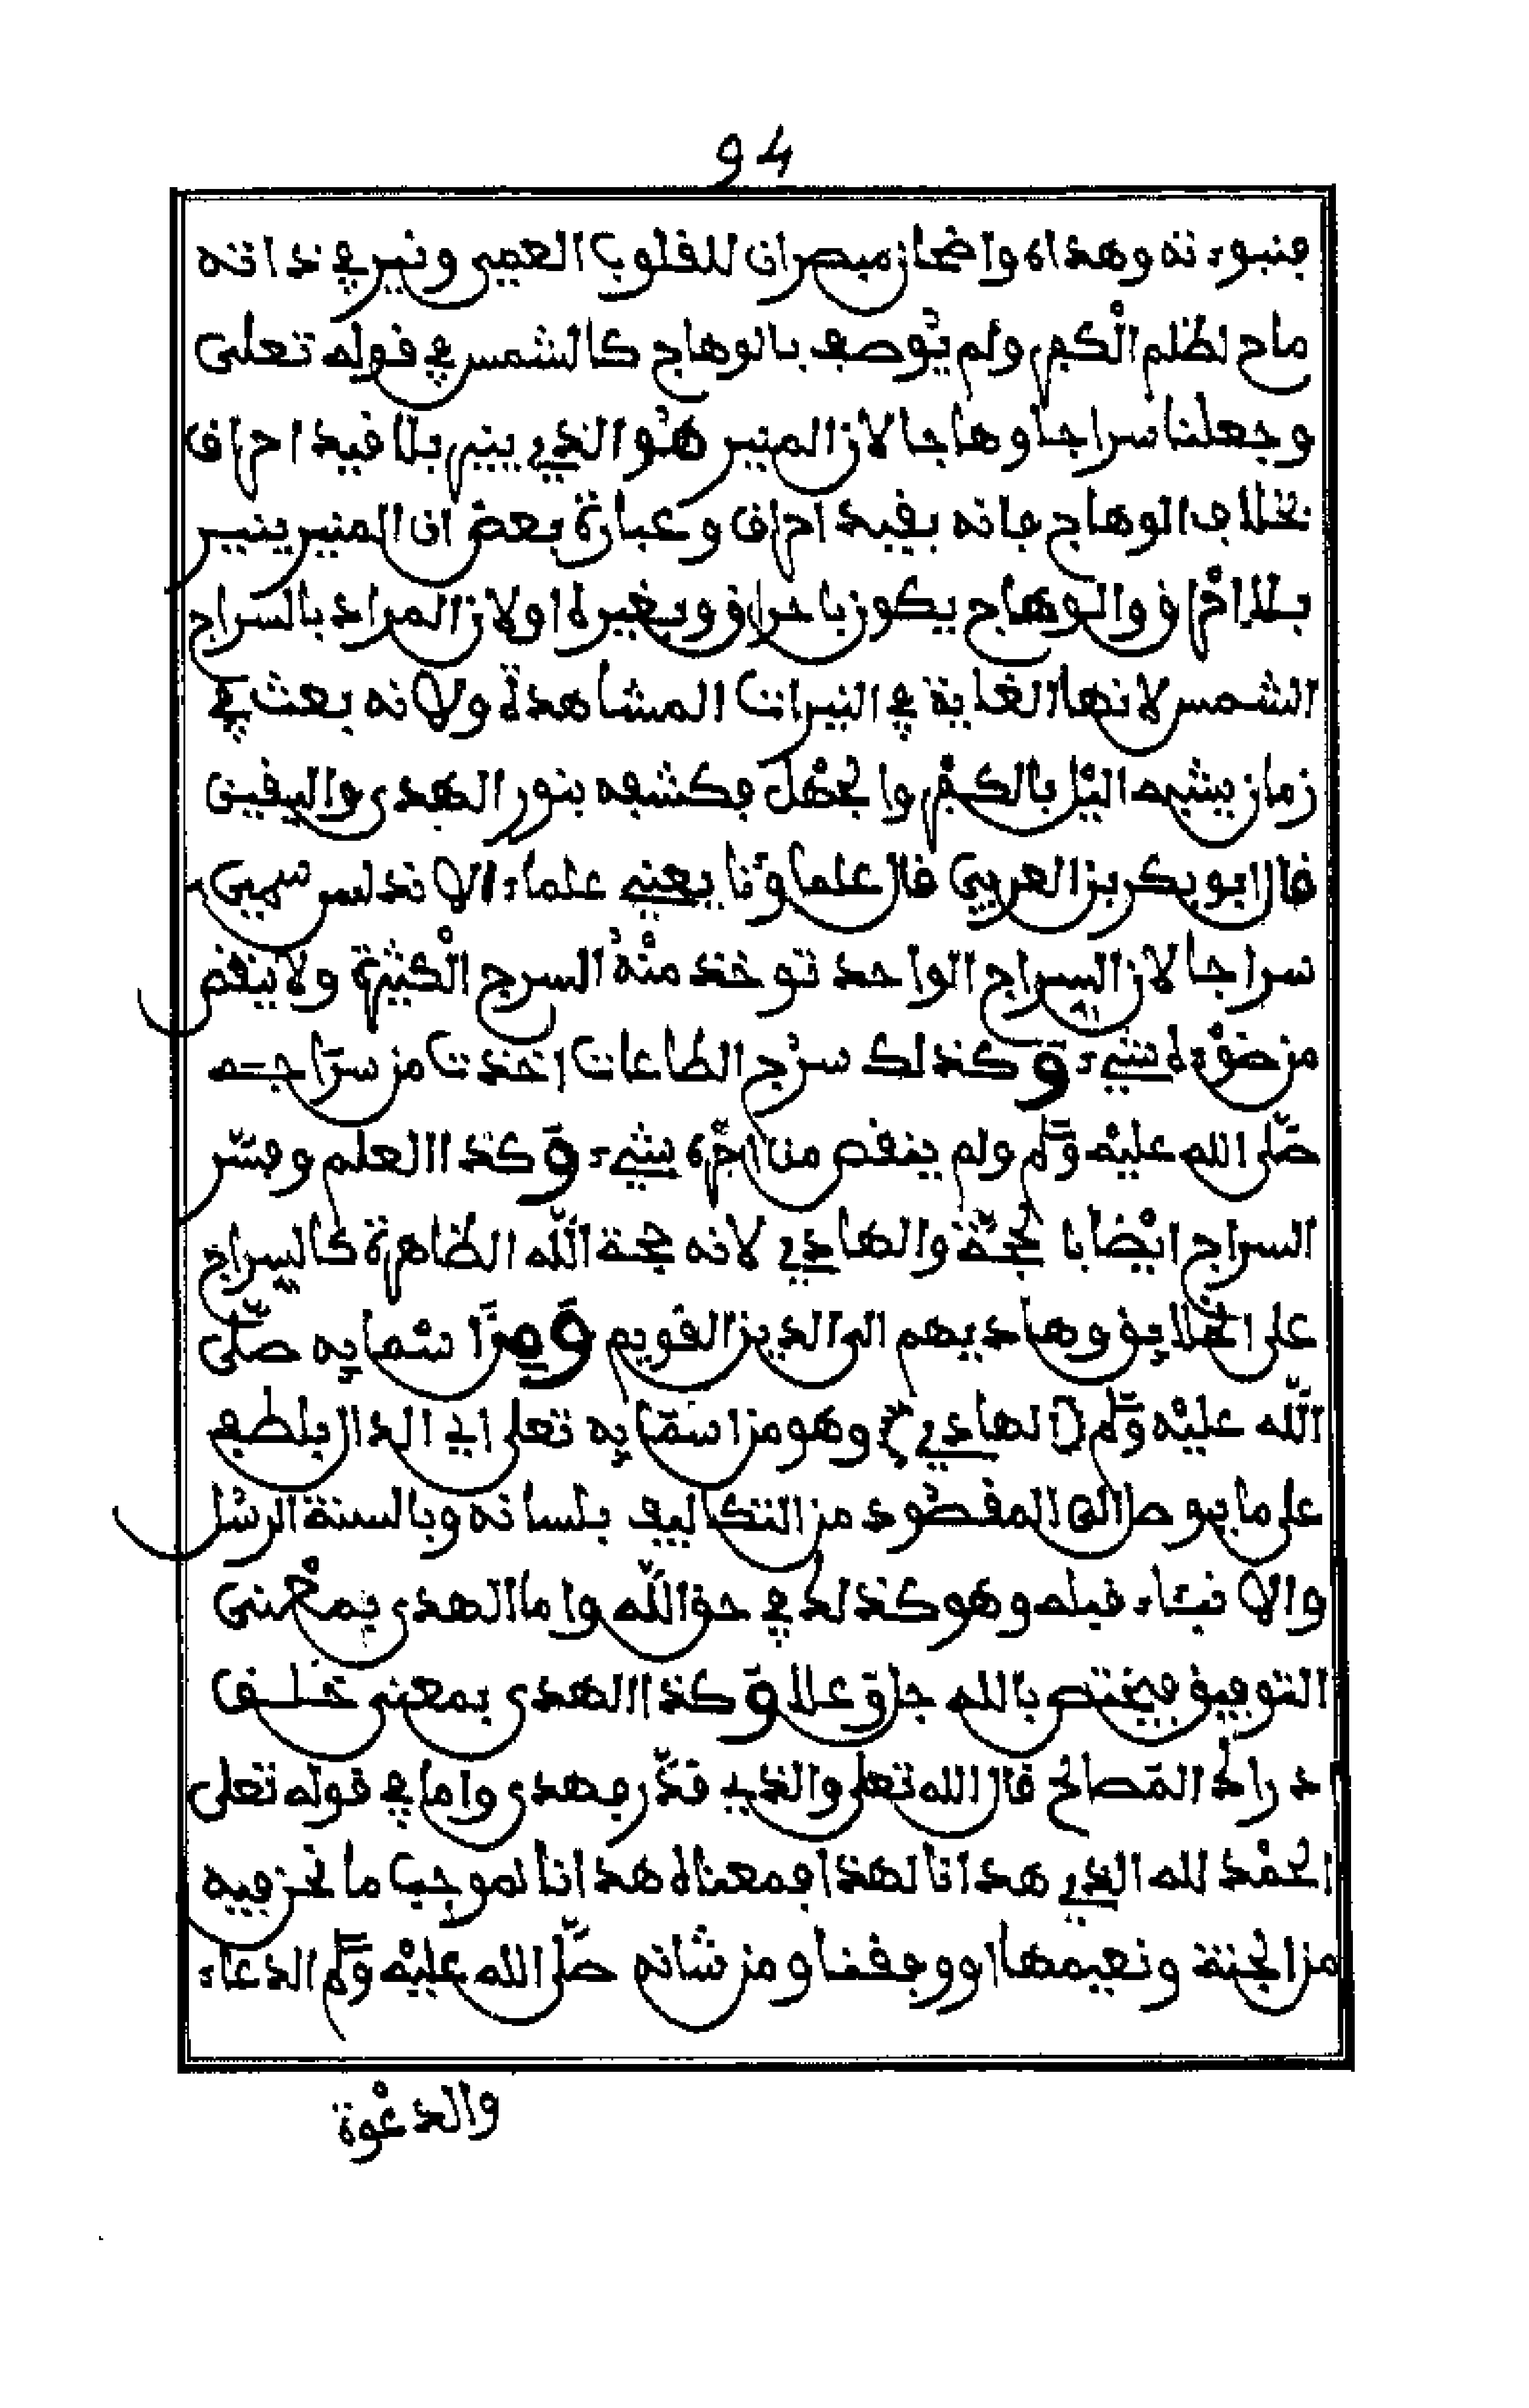 94
فنبوءته وهداه واضحان مبصران للقلوب العمي ونير في ذاته
ماح لظلم الكفر ولم يوصف بالوهاج كالشمس في قوله تعلى
وجعلنا سراجا وهاجا لان المنير هو الذي ينير بلا قيد احراق
بخلاف الوهاج فانه بقيد احراق وعبارة بعض ان المنير ينير
بلا احراق والوهاج يكون باحراق وبغيره او لان المراد بالسراج
الشمس لانها الغاية في النيرات المشاهدة ولانه بعث في
زمان يشبه اليل بالكفر والجهل فكشفه بنور الهدى واليقين
قال ابو بكر بن العربي قال علماؤنا يعني علماء الاندلس سمي
سراجا لان السراج الواحد توخذ منه السرج الكثيرة ولا ينقص
من ضوءه شيء وكذلك سرج الطاعات اخذت من سراجه
صلى الله عليه وسلم ولم ينقص من اجره شيء وكذا العلم وفسر
السراج ايضا بالحجة والهادي لانه حجة الله الظاهرة كالسراج
على الخلايق وهاديهم الى الدين القويم ومن اسمايه صلى
الله عليه وسلم (الهادي) وهو من اسمايه تعلى اي الدال بلطف
على ما يوصل الى المقصود من التكاليف بلسانه وبالسنة الرسل
والانبياء قبله وهو كذلك في حق الله واما الهدى بمعنى
التوفيق فيختص بالله جل وعلا وكذا الهدى بمعنى خلق
ادراك المصالح قال الله تعلى والذي قدر فهدى واما في قوله تعلى
الحمد لله الذي هدانا لهذا فمعناه هدانا لموجب ما نحن فيه
من الجنة ونعيمها او وفقنا ومن شانه صلى الله عليه وسلم الدعاء
والدعوة